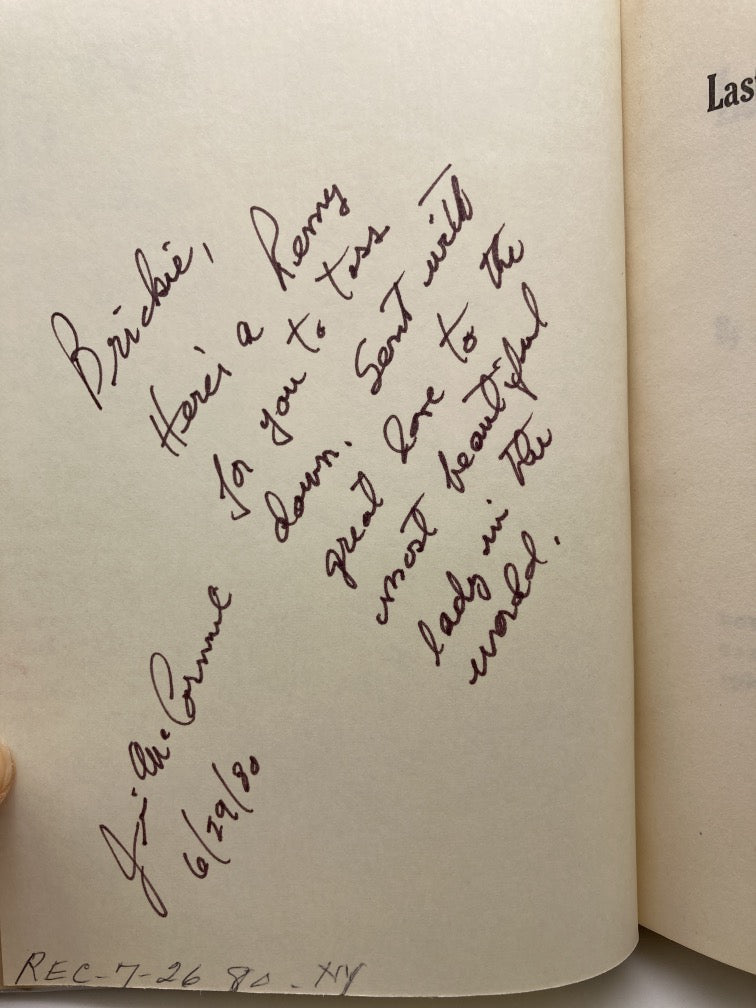 Brickie,
Here's a Remy
for you to toss
down. Sent with
great love to the
most beautiful
lady in the
world.
Jim
6/29/80
REC-7-26 80 - NY
Las